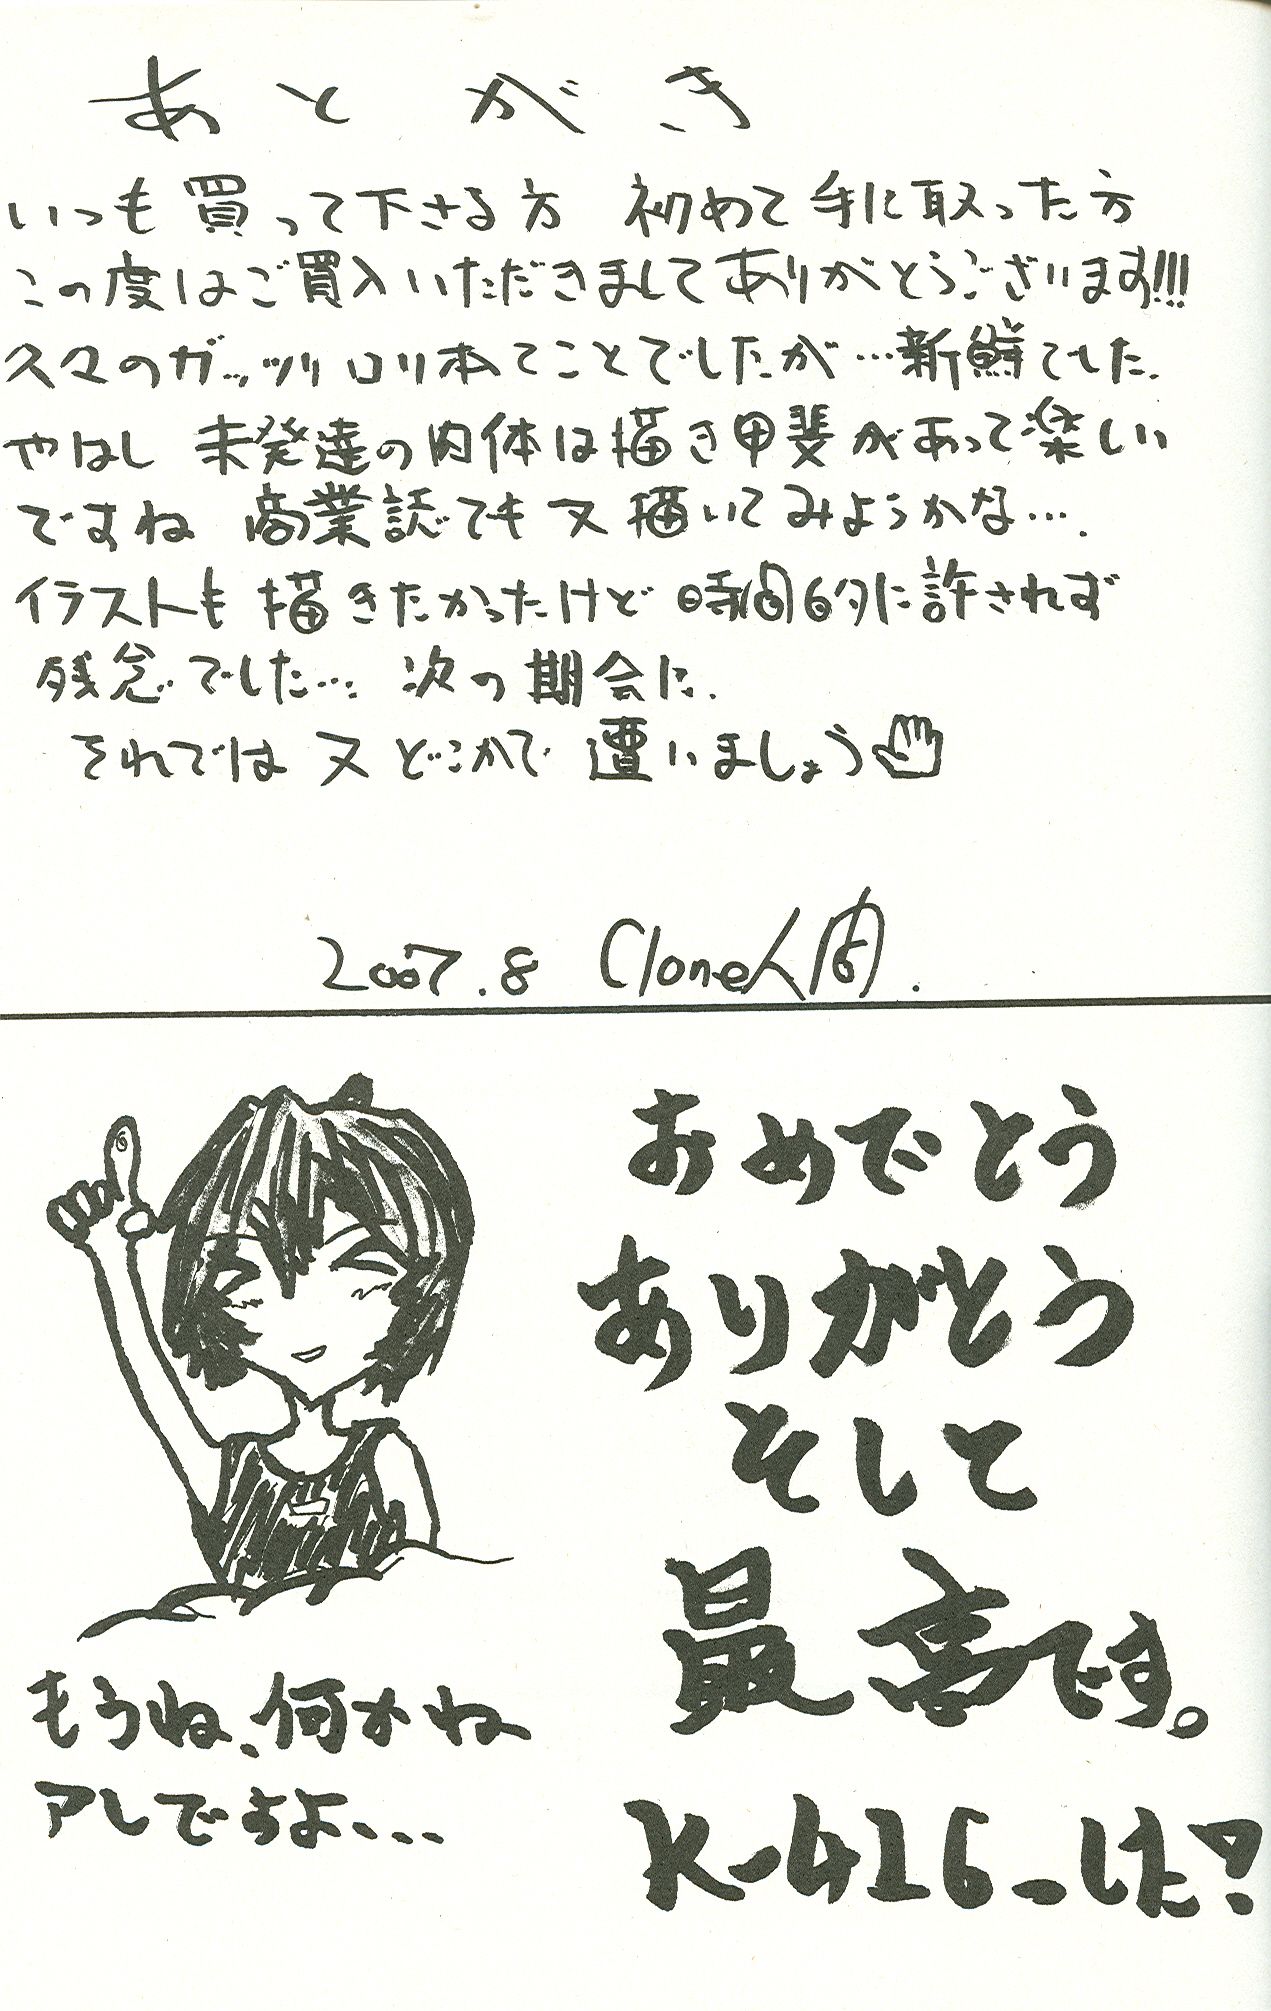 あとがき
いつも買って下さる方 初めて手に取った方
この度はご買入いただきましてありがとうございます!!!
久々のガッツリロリ本てことでしたが…新鮮でした.
やはし 未発達の肉体は描き甲斐があって楽しい
ですね 商業誌でも又描いてみようかな….
イラストも描きたかったけど時間的に許されず
残念でした… 次の期会に.
それでは又どこかで遭いましょう
2007.8 Clone人間.
おめでとう
ありがとう
そして
最高です。
K-416
もうね、何かね
アレですよ、、、